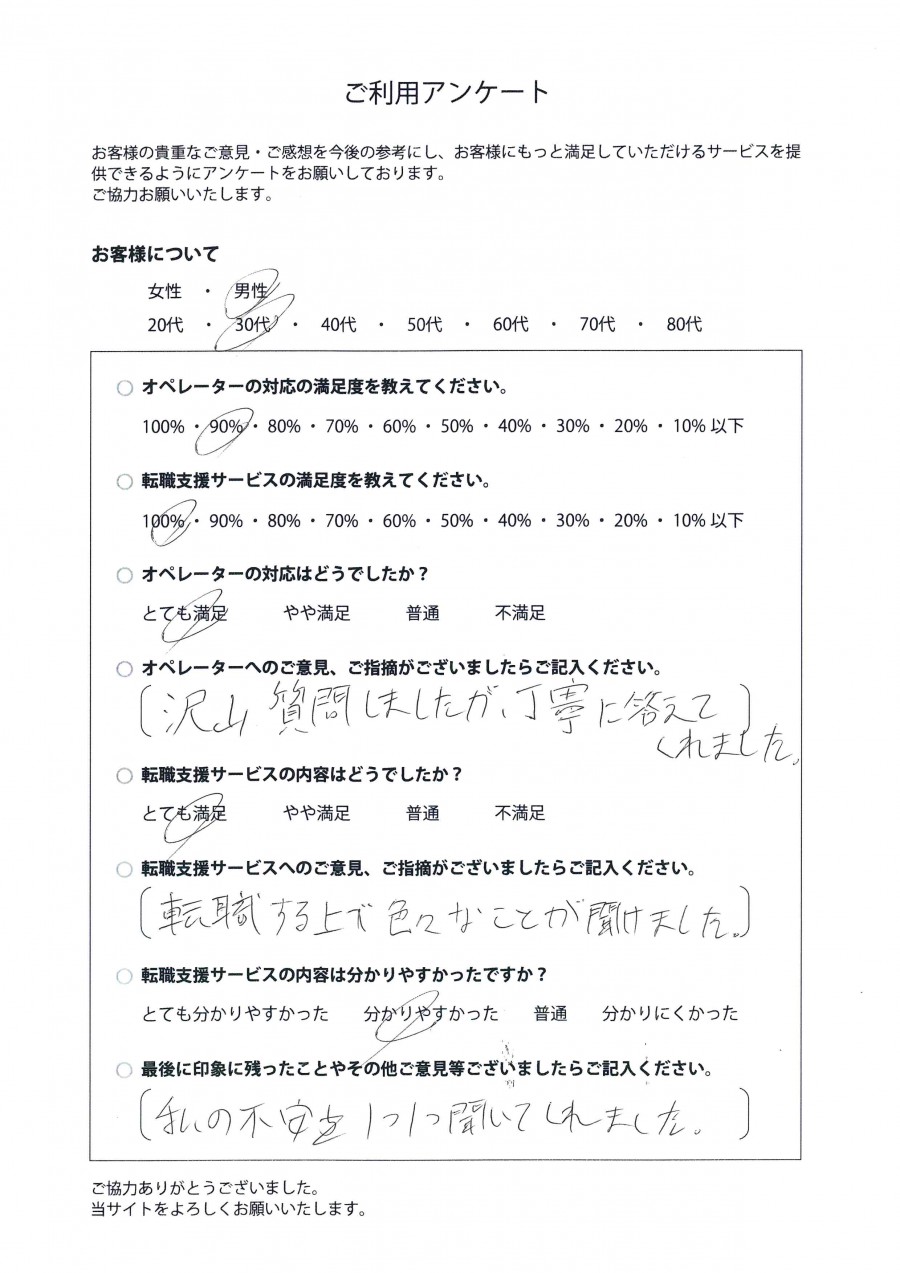 ご利用アンケート
お客様の貴重なご意見・ご感想を今後の参考にし、お客様にもっと満足していただけるサービスを提
供できるようにアンケートをお願いしております。
ご協力お願いいたします。
お客様について
女性 ・ 男性
20代 ・ 30代 ・ 40代 ・ 50代 ・ 60代 ・ 70代 ・ 80代
○ オペレーターの対応の満足度を教えてください。
100% ・ 90% ・ 80% ・ 70% ・ 60% ・ 50% ・ 40% ・ 30% ・ 20% ・ 10% 以下
○ 転職支援サービスの満足度を教えてください。
100% ・ 90% ・ 80% ・ 70% ・ 60% ・ 50% ・ 40% ・ 30% ・ 20% ・ 10% 以下
○ オペレーターの対応はどうでしたか？
とても満足 やや満足 普通 不満足
○ オペレーターへのご意見、ご指摘がございましたらご記入ください。
沢山質問しましたが、丁寧に答えて
くれました。
○ 転職支援サービスの内容はどうでしたか？
とても満足 やや満足 普通 不満足
○ 転職支援サービスへのご意見、ご指摘がございましたらご記入ください。
転職する上で色々なことが聞けました。
○ 転職支援サービスの内容は分かりやすかったですか？
とても分かりやすかった 分かりやすかった 普通 分かりにくかった
○ 最後に印象に残ったことやその他ご意見等ございましたらご記入ください。
私の不安を1つ1つ聞いてくれました。
ご協力ありがとうございました。
当サイトをよろしくお願いいたします。